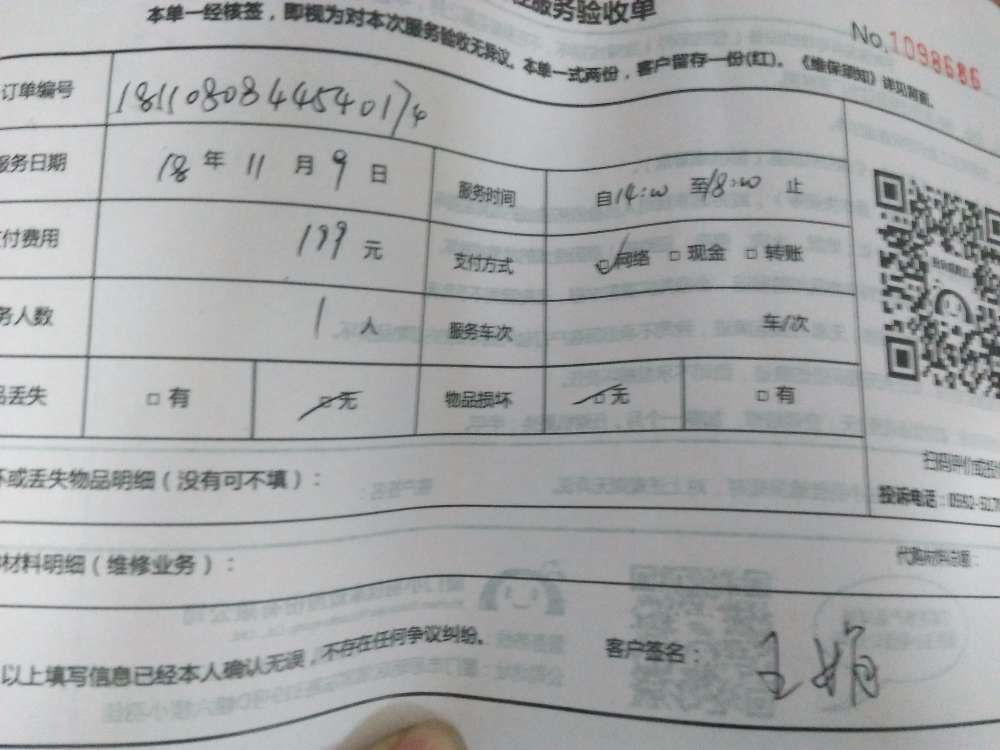 服务验收单
本单一经核签，即视为对本次服务验收无异议。本单一式两份，客户留存一份(红)。《维保须知》详见背面。
No.1098686
订单编号 1811080844540174
服务日期 18 年 11 月 9 日 服务时间 自14:00 至18:00 止
付费用 199 元 支付方式 ☑网络 □ 现金 □ 转账
务人数 1 人 服务车次 车/次
丢失 □ 有 ☑无 物品损坏 ☑无 □ 有
坏或丢失物品明细（没有可不填）：
扫码评价或投
投诉电话：0592-517
材料明细（维修业务）：
代购材料总额：
以上填写信息已经本人确认无误，不存在任何争议纠纷。
客户签名：王娟